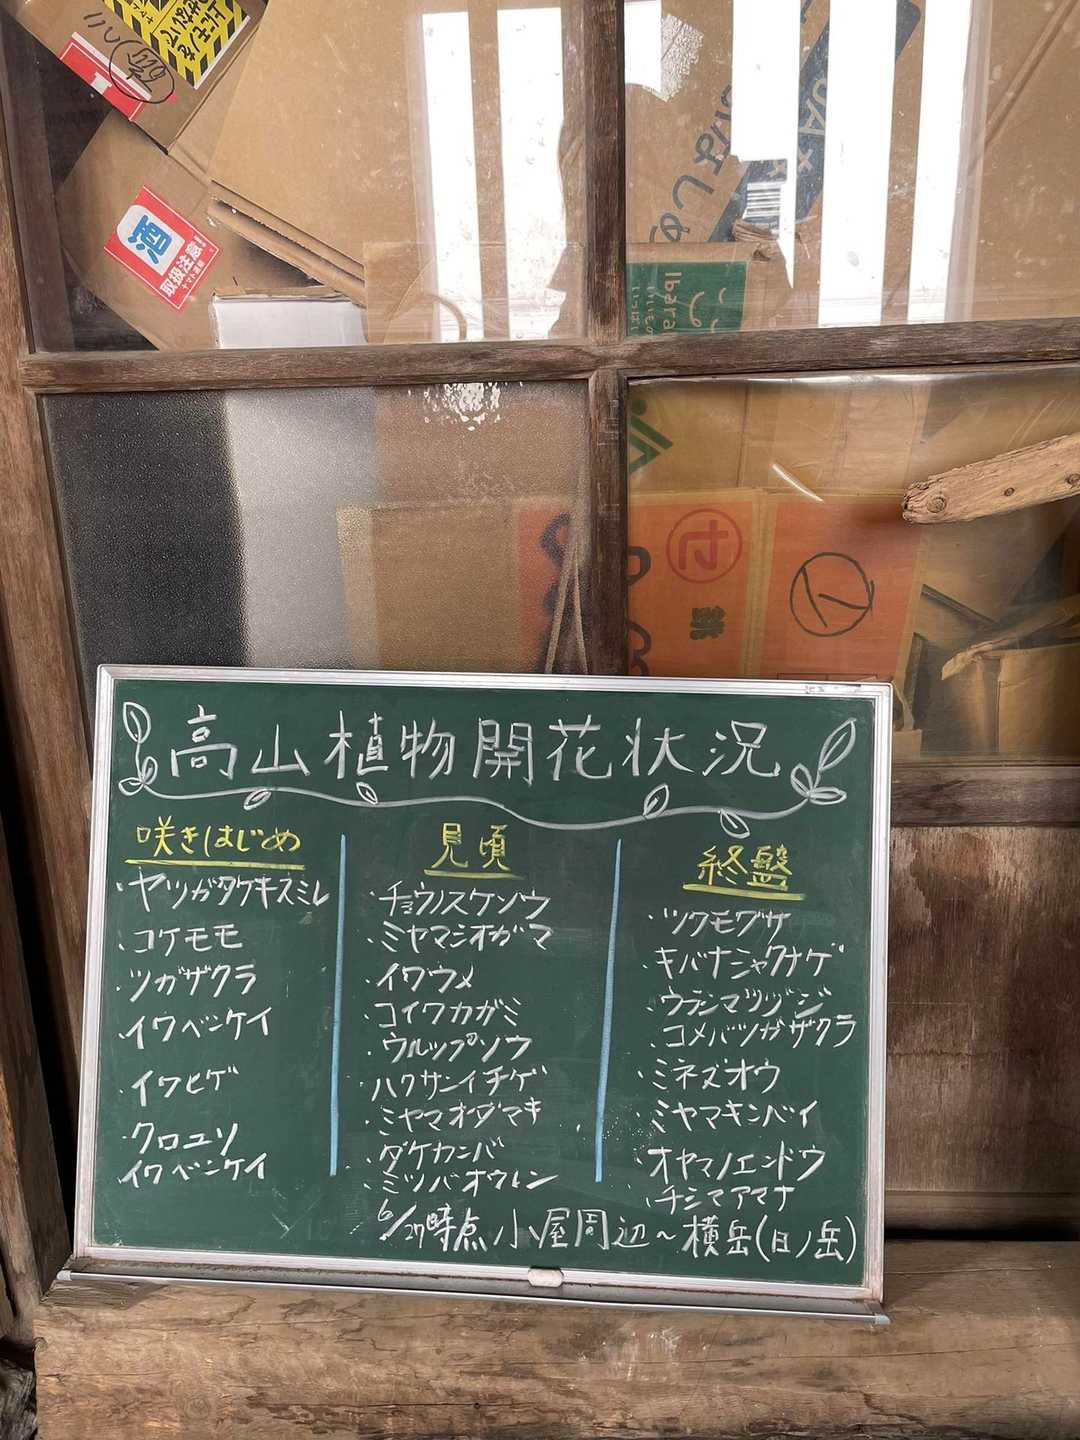 上にモノを
のせないで
酒
取扱注意!!
ヤマト運輸
Ibara
セ
高山植物開花状況
咲きはじめ
・ヤツガタケキスミレ
・コケモモ
・ツガザクラ
・イワベンケイ
・イワヒゲ
・クロユリ
イワベンケイ
見頃
・チョウノスケソウ
・ミヤマシオガマ
・イワウメ
・コイワカガミ
・ウルップソウ
・ハクサンイチゲ
・ミヤマオダマキ
・ダケカンバ
・ミツバオウレン
終盤
・ツクモグサ
・キバナシャクナゲ
・ウラシマツツジ
・コメバツガザクラ
・ミネズオウ
・ミヤマキンバイ
・オヤマノエンドウ
・チシマアマナ
6/27時点 小屋周辺〜横岳(日ノ岳)